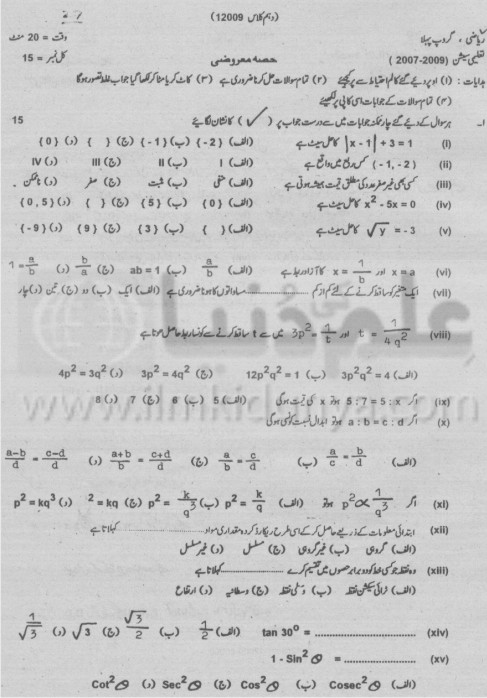 (دہم کلاس 12009)
ریاضی ، گروپ پہلا وقت = 20 منٹ
تعلیمی سیشن (2007-2009) حصہ معروضی کل نمبر = 15
ہدایات : (۱) اوپر دیئے گئے کالم احتیاط سے پر کیجئے (۲) تمام سوالات حل کرنا ضروری ہے (۳) کاٹ کر یا مٹا کر لکھا گیا جواب غلط تصور ہوگا
(۴) تمام سوالات کے جوابات اسی کاپی پر لکھیئے
۱- ہر سوال کے دیئے گئے چار ممکنہ جوابات میں سے درست جواب پر ( ✓ ) کا نشان لگایئے 15
(i) |x - 1| + 3 = 1 کا حل سیٹ ہے (الف) {-2} (ب) {-1} (ج) { } (د) {0}
(ii) (-1, -2) کس ربع میں واقع ہے (الف) I (ب) II (ج) III (د) IV
(iii) کسی بھی غیر صفر عدد کی مطلق قیمت ہمیشہ ہوتی ہے (الف) منفی (ب) مثبت (ج) صفر (د) ناممکن
(iv) x² - 5x = 0 کا حل سیٹ ہے (الف) {0} (ب) {5} (ج) { } (د) {0, 5}
(v) √y = -3 کا حل سیٹ ہے (الف) { } (ب) {3} (ج) {9} (د) {-9}
(vi) x = a اور x = 1/b کا آزاد ربط ہے (الف) a/b (ب) ab = 1 (ج) b/a (د) 1 = a/b
(vii) ایک متغیر کو ساقط کرنے کے لئے کم از کم .................. مساواتوں کا ہونا ضروری ہے (الف) ایک (ب) دو (ج) تین (د) چار
(viii) t = 1/4q² اور 3p² = 1/t میں سے t ساقط کرنے سے کونسا ربط حاصل ہوتا ہے
(الف) 3p²q² = 4 (ب) 12p²q² = 1 (ج) 3p² = 4q² (د) 4p² = 3q²
(ix) اگر 5 : 7 = 5 : x ہو تو x کی قیمت ہوگی (الف) 5 (ب) 6 (ج) 7 (د) 8
(x) اگر a : b = c : d ہو تو ابدال نسبت کونسی ہوگی
(الف) a/c = b/d (ب) a/b = c/d (ج) a+b/b = c+d/d (د) a-b/d = c-d/d
(xi) اگر p² ∝ 1/q³ ہو تو (الف) p² = k/q (ب) p² = k/q³ (ج) ² = kq (د) p² = kq³
(xii) ابتدائی معلومات کے ذریعے حاصل کر کے اسی طرح ریکارڈ کردہ مقداری مواد .................. کہلاتا ہے
(الف) گروہی (ب) غیر گروہی (ج) مسلسل (د) غیر مسلسل
(xiii) وہ نقطہ جو کسی خط کو دو برابر حصوں میں تقسیم کرے .................. کہلاتا ہے
(الف) ٹرائی سیکشن نقطہ (ب) وسطی نقطہ (ج) وسطانیہ (د) ارتفاع
(xiv) tan 30° = .................. (الف) 1/2 (ب) √3/2 (ج) √3 (د) 1/√3
(xv) 1 - Sin² Θ = ..................
(الف) Cosec² Θ (ب) Cos² Θ (ج) Sec² Θ (د) Cot² Θ
علم کی دنیا
www.ilmkidunya.com